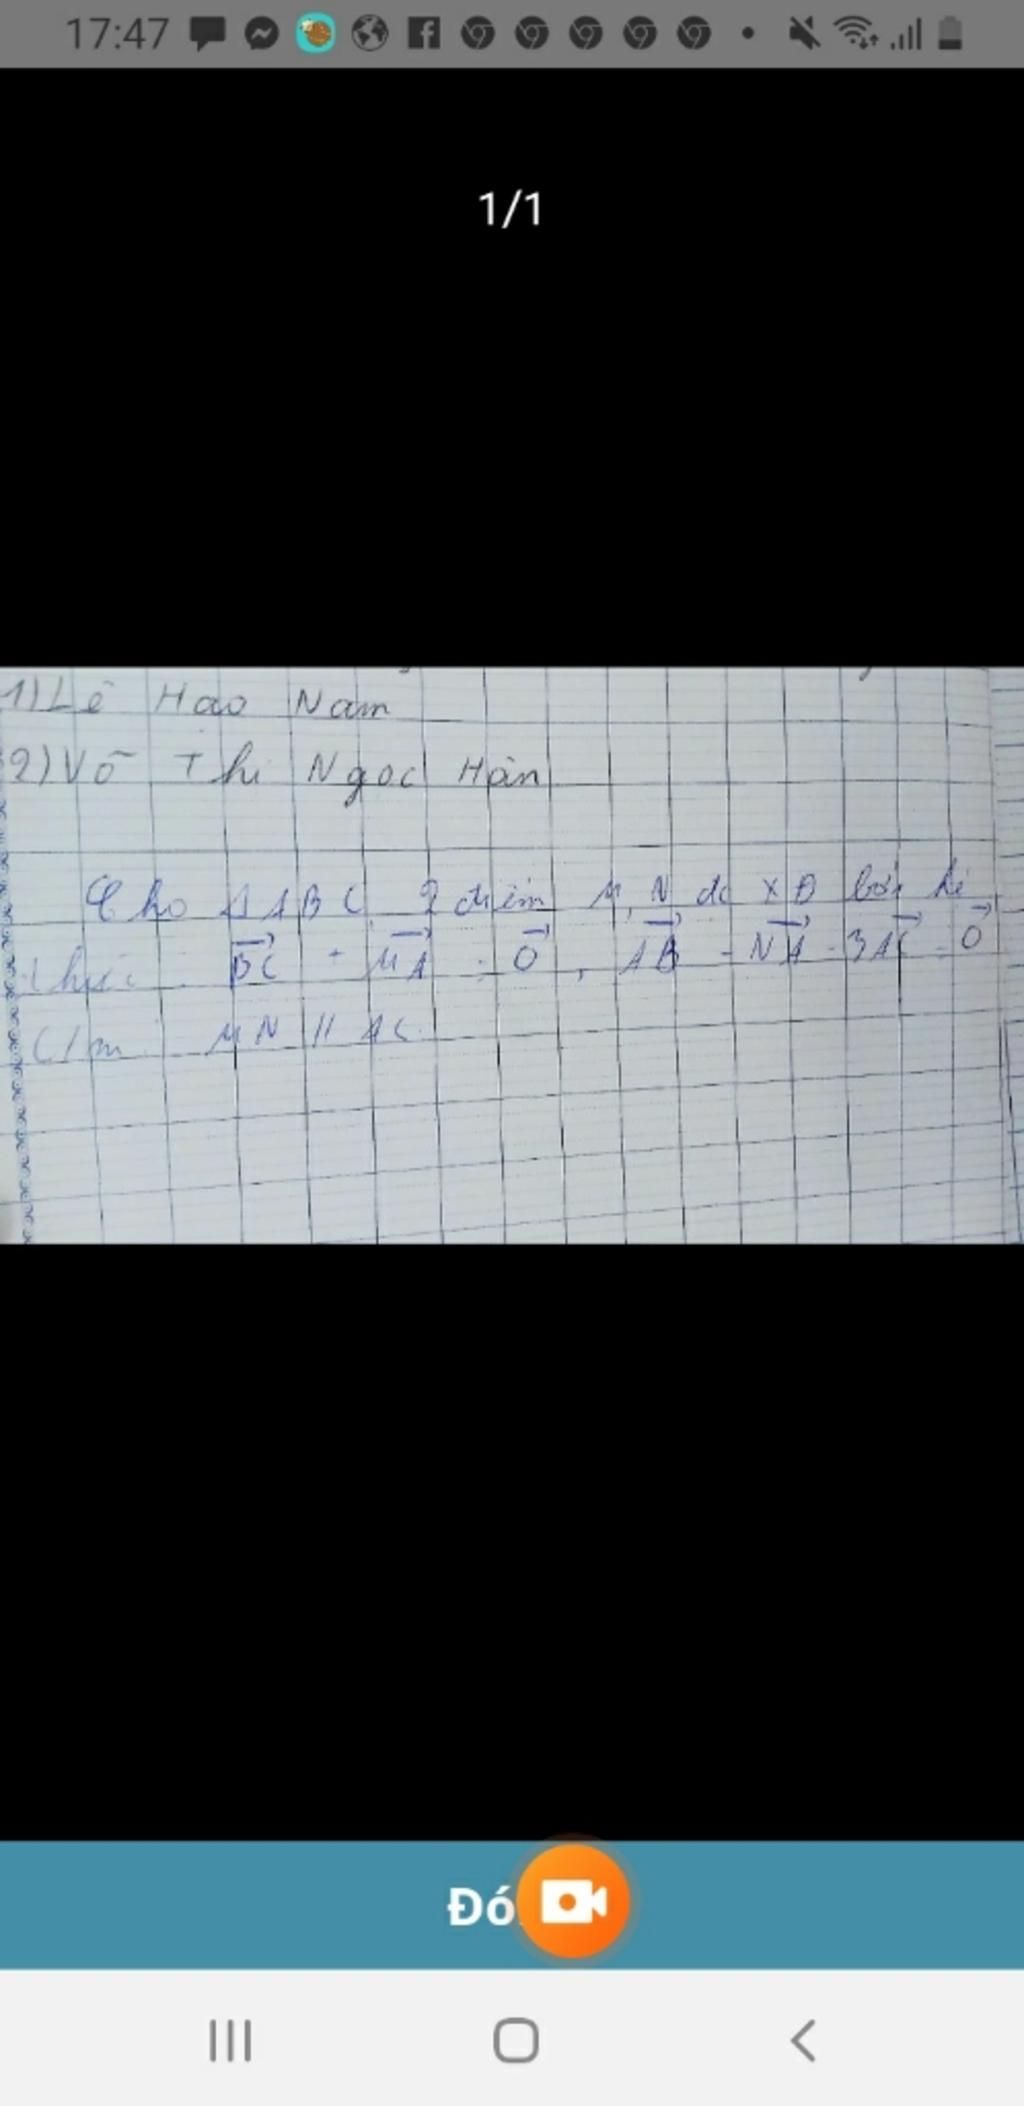 17:47
1/1
1) Lê Hao Nam
2) Võ Thi Ngoc Hân
Cho Δ ABC 2 điểm M, N đc XĐ bởi hệ
thức BC + MA = 0, AB - NA - 3AC = 0
C/m MN // AC
Đó